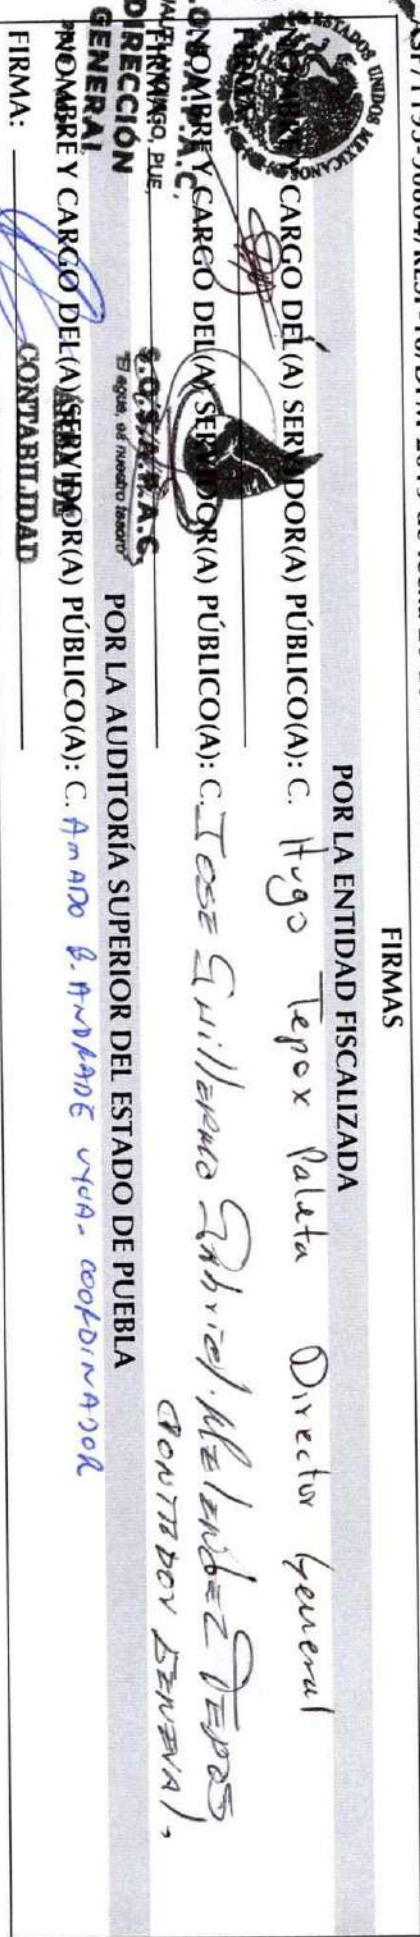 FIRMAS
POR LA ENTIDAD FISCALIZADA
NOMBRE Y CARGO DEL(A) SERVIDOR(A) PÚBLICO(A): C. Hugo Tepox Paleta Director General
FIRMA:
NOMBRE Y CARGO DEL(A) SERVIDOR(A) PÚBLICO(A): C. JOSE Guillermo Gabriel Melendez
CONTADOR GENERAL.
FIRMA:
POR LA AUDITORÍA SUPERIOR DEL ESTADO DE PUEBLA
NOMBRE Y CARGO DEL(A) SERVIDOR(A) PÚBLICO(A): C. AMADO B. ANDRADE COORDINADOR
FIRMA:
ESTADOS UNIDOS MEXICANOS
PUE.
DIRECCIÓN
GENERAL
S.O.S.A.P.A.C.
"El agua, es nuestro tesoro"
AREA DE
CONTABILIDAD